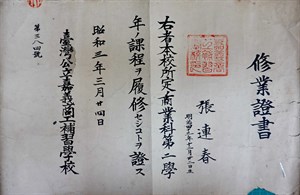 修業證書
張連春
明治四十三年十二月廿八日生
右者本校所定ノ商業科第二學
年ノ課程ヲ履修セシコトヲ證ス
昭和三年三月廿四日
臺灣公立嘉義商工補習學校
第三八四號